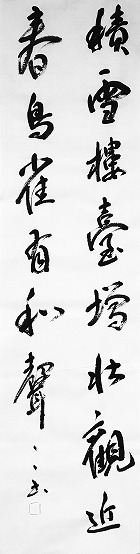 積雪樓臺增壯觀近
春鳥雀有和聲